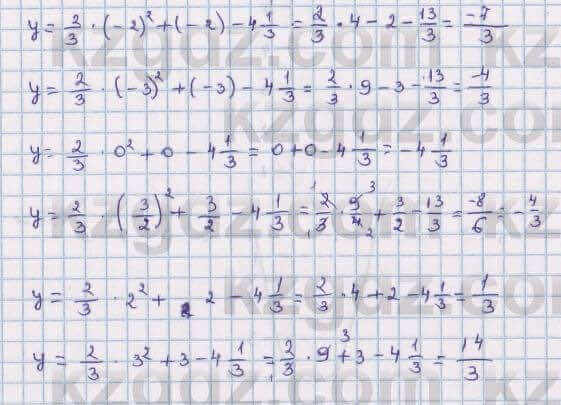 y = 2/3 · (-2)² + (-2) - 4 1/3 = 2/3 · 4 - 2 - 13/3 = -7/3
y = 2/3 · (-3)² + (-3) - 4 1/3 = 2/3 · 9 - 3 - 13/3 = -4/3
y = 2/3 · 0² + 0 - 4 1/3 = 0 + 0 - 4 1/3 = -4 1/3
y = 2/3 · (3/2)² + 3/2 - 4 1/3 = 2/3 · 9/4 + 3/2 - 13/3 = -8/6 = -4/3
y = 2/3 · 2² + 2 - 4 1/3 = 2/3 · 4 + 2 - 4 1/3 = 1/3
y = 2/3 · 3² + 3 - 4 1/3 = 2/3 · 9 + 3 - 4 1/3 = 14/3